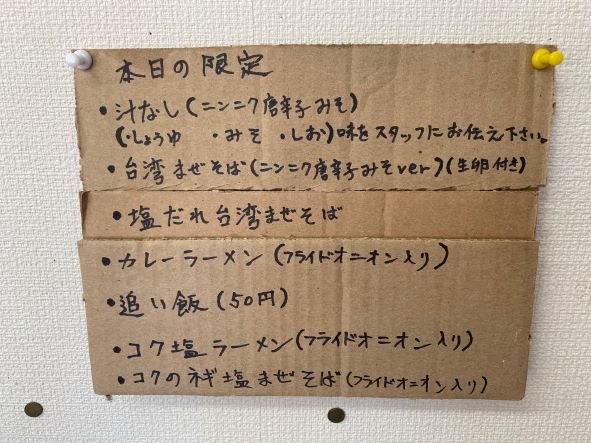 本日の限定
・汁なし(ニンニク唐辛子みそ)
(・しょうゆ ・みそ ・しお)味をスタッフにお伝え下さい。
・台湾まぜそば(ニンニク唐辛子みそver)(生卵付き)
・塩だれ台湾まぜそば
・カレーラーメン(フライドオニオン入り)
・追い飯(50円)
・コク塩ラーメン(フライドオニオン入り)
・コクのネギ塩まぜそば(フライドオニオン入り)